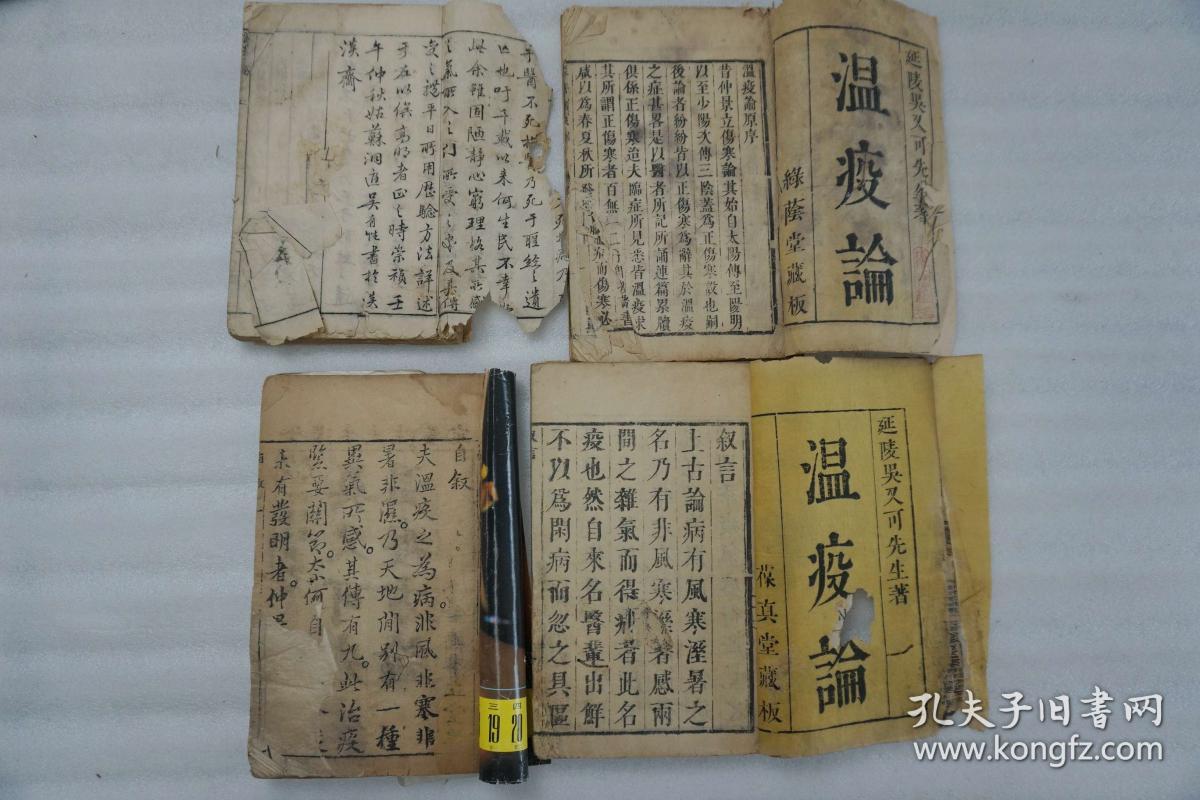 于醫不死
乃死于聖經之遺
亡也吁千載以来何生民不幸
此余雖固陋静心窮理格其所感
之氣所入之门所受之處及其傳
變之體平日所用歷騐方法詳述
于左以俟高明者正之時崇禎壬
午仲秋姑蘇洞庭吳有性書於淡
淡齋
延陵吳又可先生著
温疫論
綠蔭堂藏板
溫疫論原序
昔仲景立傷寒論其始自太陽傳至陽明
以至少陽次傳三陰蓋為正傷寒設也嗣
後論者紛紛皆以正傷寒為辭其於溫疫
之症甚畧是以醫者所記所誦連篇累牘
俱係正傷寒迨夫臨症所見悉皆溫疫求
其所謂正傷寒者百無一二
而傷寒必
咸以為春夏秋所
自叙
夫溫疫之為病。非風非寒非
暑非濕。乃天地間別有一種
異氣所感。其傳有九。此治疫
緊要關節。
何自
未有發明者。仲景
三 四
19 20
延陵吳又可先生著
温疫論
葆真堂藏板
叙言
上古論病有風寒溼暑之
名乃有非風寒溼暑感兩
間之雜氣而得
者此名
疫也然自來名醫輩出鮮
不以爲閑病而忽之具區
叙言
孔夫子旧书网
www.kongfz.com